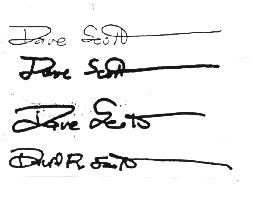 Dave Scott
Dave Scott
Dave Scott
David R. Scott